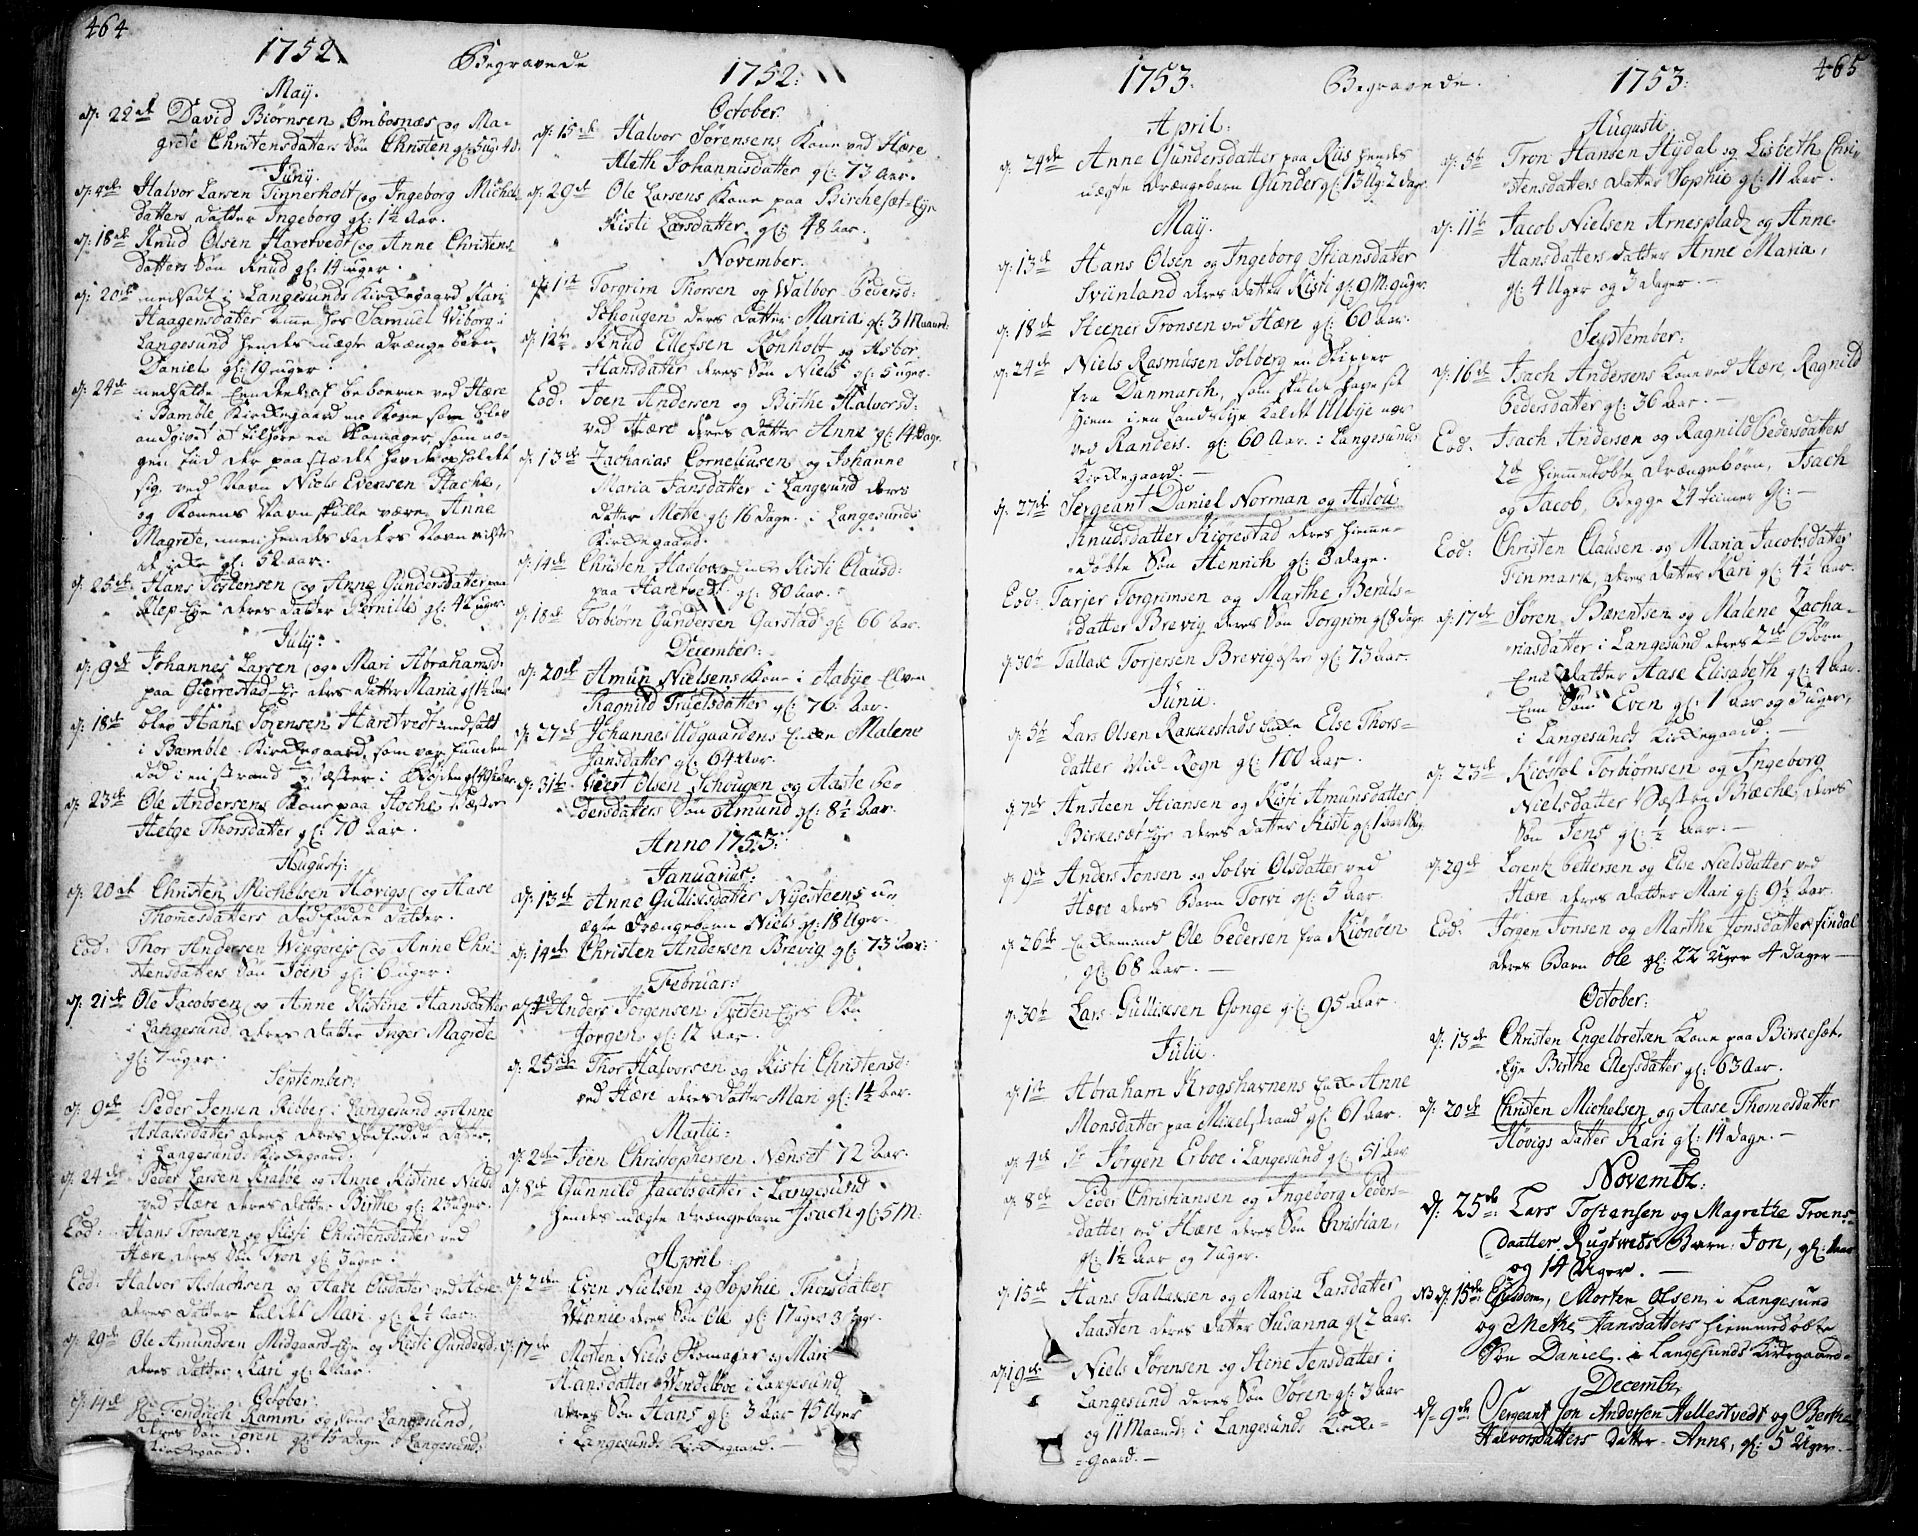 464
1752
Begravede
May.
d: 22de David Biørnsen Ombosnæs og Ma-
grete Christensdatters Søn Christen gl: 5 ug: 4 d:
Junij:
d: 4de Halvor Larsen Tinnerholt og Ingeborg Michels
datters datter Ingeborg gl: 1½ Aar.
d: 18de Knud Olsen Haretvedt og Anne Christens
datters Søn Knud gl: 14 uger.
d: 20de nedsadt i Langesunds Kirkegaard Kari
Haagensdatter hos Samuel Wiborg i
Langesund hendes uægte drængebarn
Daniel gl: 19 uger.
d: 24de nedsatte Een deel af beboerne ved Hære
i Bamble Kirkegaard en Kone som blev
andgived at tilhøre en Skomager, som no-
gen tiid der paa stædet havde opholdet
sig, ved Navn Niels Evensen Stache,
og Konens Navn skulle være Anne
Magrete, men hendes faders Navn vidste
de icke gl: 52 aar.
d: 25de Hans Tostensen og Anne Gundersdatter paa
Klep-Eye deres datter Pernille gl: 4½ uger.
Julij:
d: 9de Johannes Larsen og Mari Abrahamsd:
paa Gierrestad-Eye deres datter Maria gl: 1½ Aar
d: 18de blev Hans Sørensen Haretvedt nedsatt
i Bamble Kirkegaard, som var funden
død i en strand
d: 23de Ole Andersens Kone paa Stoche
Helge Thorsdatter gl: 70 Aar.
Augusti:
d: 20de Christen Michelsen Høvigs og Aase
Thomesdatters dødfødde datter.
Eod: Thor Andersen Wiggereis og Anne Chri-
stensdatters Søn Joen gl: 6 uger.
d: 21de Ole Jacobsen og Anne Kistine Hansdatter
i Langesund deres datter Inger Magrete
gl: 7 uger.
September:
d: 9de Peder Jensen Kibber i Langesund og Anne
Aslaksdatter deres dødfødde datter,
i Langesunds Kirkegaard.
d: 24de Peder Larsen Krabbe og Anne Kistine Nielsd
ved Hære deres datter Birthe gl: 23 uger.
Eod: Hans Tronsen og Kisti Christensdatter ved
Hære, deres Søn Tron gl: 3 uger.
Eod: Halvor Aslachsen og Aase Olsdatter ved Hære
deres datter kaldet Mari gl: 2½ Aar.
d: 29de Ole Amundsen Midgaard-Eye og Kisti Gundersd:
deres datter Kari gl: 2 Aar.
October:
d: 14de Fendrich Ramm og Frue i Langesund,
deres Søn Søren gl: 15 dage i Langesunds
Kirkegaard.
1752:
October:
d: 15de Halvor Sørensens Kone ved Hære
Aleth Johannisdatter gl: 73 Aar.
d: 29de Ole Larsens Kone paa Birchesæt-Eye
Kisti Larsdatter gl: 48 Aar.
November.
d: 1ste Torgrim Thorsen og Walbor Pedersd:
Schougen deres datter Maria gl: 3 Maaned:
d: 12te Knud Ellefsen Rønholt og Asbor
Hansdatter deres Søn Niels gl: 5 uger.
Eod: Joen Andersen og Birthe Halvorsd:
ved Hære deres datter Anne gl: 14 dage.
d: 13de Zacharias Corneliusen og Johanne
Maria Jansdatter i Langesund deres
datter Mette gl: 16 dage i Langesunds
Kirkegaard.
d: 14de Christen Haslovs Encke Kisti Clausd:
paa Haretvedt gl: 80 Aar.
d: 18de Torbiørn Gundersen Gurstad gl: 66 Aar.
December:
d: 20de Amun Nielsens Kone i Aabye-Elven
Ragnild Truelsdatter gl: 76 Aar.
d: 27de Johannes Udgaardens Encke Malene
Jansdatter gl: 64 Aar.
d: 31te Giert Olsen Schougen og Aaste Pe-
dersdatters Søn Amund gl: 8½ Aar.
Anno 1753:
Januarius:
d: 13de Anne Gulliksdatter Nijesteens u-
ægte drængebarn Niels gl: 18 Uger.
d: 14de Christen Andersen Brevig gl: 73 Aar:
Februar:
d: 4de Anders Jørgensen Tveten-Eyes Søn
Jørgen gl: 12 Aar.
d: 25de Thor Halvorsen og Kisti Christensd:
ved Hære deres datter Mari gl: 1½ Aar.
Martii:
d: 2den Joen Christophersen Nænset 72 Aar.
d: 8de Gunnild Jacobsdatter i Langesund
hendes uægte drængebarn Isach gl: 5 M:
April:
d: 2den Even Nielsen og Sophie Thorsdatter
Winnie deres Søn Ole gl: 17 uger 3 dage.
d: 17de Morten Niels Skomager og Mari
Hansdatter Wendelboe i Langesund
deres Søn Hans gl: 3 Aar 45 Uger
i Langesunds Kirkegaard.
1753.
Begravede.
April:
d: 24de Anne Gundersdatter paa Riis hendes
uægte drængebarn Gunder gl: 13 Ug: 2 dage.
May.
d: 13de Hans Olsen og Ingeborg Stiansdatter
Svinland deres datter Kisti gl: 9 M: 9 uger.
d: 18de Steener Tronsen ved Hære gl: 60 Aar.
d: 24de Niels Rasmusen Solberg en Skipper
fra Danmarch, som skulde have sit
hiem i en Landsbye kaldet Albije nær
ved Randers. gl: 60 Aar. i Langesunds
Kirkegaard.
d: 27de Sergeant Daniel Norman og Aslou
Knudsdatter Kigrestad deres hiemme-
døbte Søn Henrich gl: 8 dage.
Eod: Tarjer Torgrimsen og Marthe Beruls-
datter Brevig deres Søn Torgrim gl: 8 dage.
d: 30te Tallak Torjersen Brevig gl: 73 Aar.
Junii.
d: 5te Lars Olsen Rakkestads Enke Else Thors-
datter Mid Rogn gl: 100 Aar.
d: 7de Ansteen Stiansen og Kisti Amunsdatter
Birkesæt-Eye deres datter Kisti gl: 1 Aar 18 ug.
d: 9de Anders Jonsen og Solvi Olsdatter ved
Hære deres Barn Torvi gl: 5 Aar.
d: 26de Enkemand Ole Pedersen fra Kiønøen
gl: 68 Aar.
d: 30te Lars Gulliksen Gonge gl: 95 Aar.
Julii.
d: 1ste Abraham Krogshavnens Enke Anne
Monsdatter paa Mikelstrand gl: 61 Aar.
d: 4de Sr Jørgen Erboe i Langesund gl: 51 Aar
d: 8de Peder Christiansen og Ingeborg Peders-
datter ved Hære deres Søn Christian,
gl: 1½ Aar og 7 uger.
d: 15de Hans Tallaksen og Maria Larsdatter
Saasten deres datter Susanna gl: 2 Aar.
d: 19de Niels Sørensen og Stine Jensdatter i
Langesund deres Søn Søren gl: 3 Aar
og 11 Maaned: i Langesunds Kirke-
gaard.
1753:
465
Augusti
d: 5te Tron Hansen Hydal og Lisbeth Chri-
stensdatters datter Sophie gl: 11 Aar.
d: 11te Jacob Nielsen Arnesplads og Anne
Hansdatters datter Anne Maria,
gl: 4 Uger og 3 dager.
September:
d: 16de Isach Andersens Kone ved Hære, Ragnild
Pedersdatter gl: 36 Aar.
Eod: Isach Andersen og Ragnild Pedersdatters
2de hiemmedøbte drængebørn, Isach
og Jacob, Begge 24 timer gl:
Eod: Christen Clausen og Maria Jacobsdatter
Finmark, deres datter Kari gl: 4½ Aar.
d: 17de Søren S Bærentsen og Malene Zacha-
riasdatter i Langesund deres 2de Børn
En datter Aase Elisabeth gl: 4 Aar
Een Søn Even gl: 1 Aar og 3 uger,
i Langesunds Kirkegaard.
d: 23de Kiøstol Torbiørnsen og Ingeborg
Nielsdatter Væstre Bæche, deres
Søn Jens gl: ½ Aar.
d: 29de Lorents Pettersen og Else Nielsdatter ved
Hære, deres datter Mari gl: 9½ Aar.
Eod: Jørgen Jonsen og Marthe Jonsdatter Findal
deres Barn Ole gl: 22 Uger 4 dager
October:
d: 13de Christen Engelbretsen Kone paa Birkeset-
Eye Birthe Ellefsdatter gl: 63 Aar.
d: 20de Christen Michelsen og Aase Thomesdatter
Høvigs datter Kari gl: 14 dage.
Novembr:
d: 25de Lars Tostensen og Magrethe Troens-
daatter Rugtvets Barn: Jon, gl: 1 aar
og 14 Uger.
NB d: 15de Ejusdem, Morten Olsen i Langesund
og Mette Hansdatters hiemmedøbte
Søn Daniel. i Langesunds Kirkegaard.
Decembr.
d: 9de Sergeant Jon Andersen Hellestvedt og Berthe
Halvorsdatters datter Anne, gl: 5 Uger.